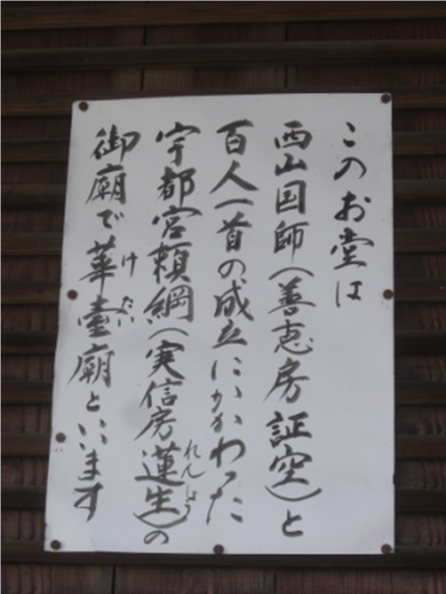 このお堂は
西山国師(善恵房証空)と
百人一首の成立にかかわった
宇都宮頼綱(実信房蓮生)の
れんしょう
御廟で華臺廟といいます
けたい